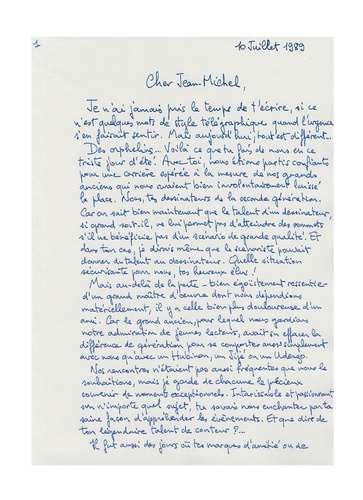 1
10 Juillet 1989
Cher Jean-Michel,
Je n'ai jamais pris le temps de t'écrire, si ce
n'est quelques mots de style télégraphique quand l'urgence
s'en faisait sentir. Mais aujourd'hui, tout est différent...
Des orphelins... Voilà ce que tu fais de nous en ce
triste jour d'été. Avec toi, nous étions partis confiants
pour une carrière espérée à la mesure de nos grands
anciens qui nous avaient bien involontairement laissé
la place. Nous, tes dessinateurs de la seconde génération.
Car on sait bien maintenant que le talent d'un dessinateur,
si grand soit-il, ne lui permet pas d'atteindre des sommets
s'il ne bénéficie pas d'un scenario de grande qualité. Et
dans ton cas, je dirais même que le scénariste pouvait
donner du talent au dessinateur. Quelle situation
sécurisante pour nous, tes heureux élus !
Mais au-delà de la perte - bien égoïstement ressentie -
d'un grand maître d'œuvre dont nous dépendions
matériellement, il y a celle bien plus douloureuse d'un
ami. Car le grand ancien, pour lequel nous gardions
notre admiration de jeunes lecteurs, avait su effacer la
différence de génération pour se comporter aussi simplement
avec nous qu'avec un Hubinon, un Jijé ou un Uderzo.
Nos rencontres n'étaient pas aussi fréquentes que nous le
souhaitions, mais je garde de chacune le précieux
souvenir de moments exceptionnels. Intarissable et passionnant
sur n'importe quel sujet, tu savais nous enchanter par ta
saine façon d'appréhender les évènements. Et que dire de
ton légendaire talent de conteur ?...
Il fut aussi des jours où tes marques d'amitié ou de